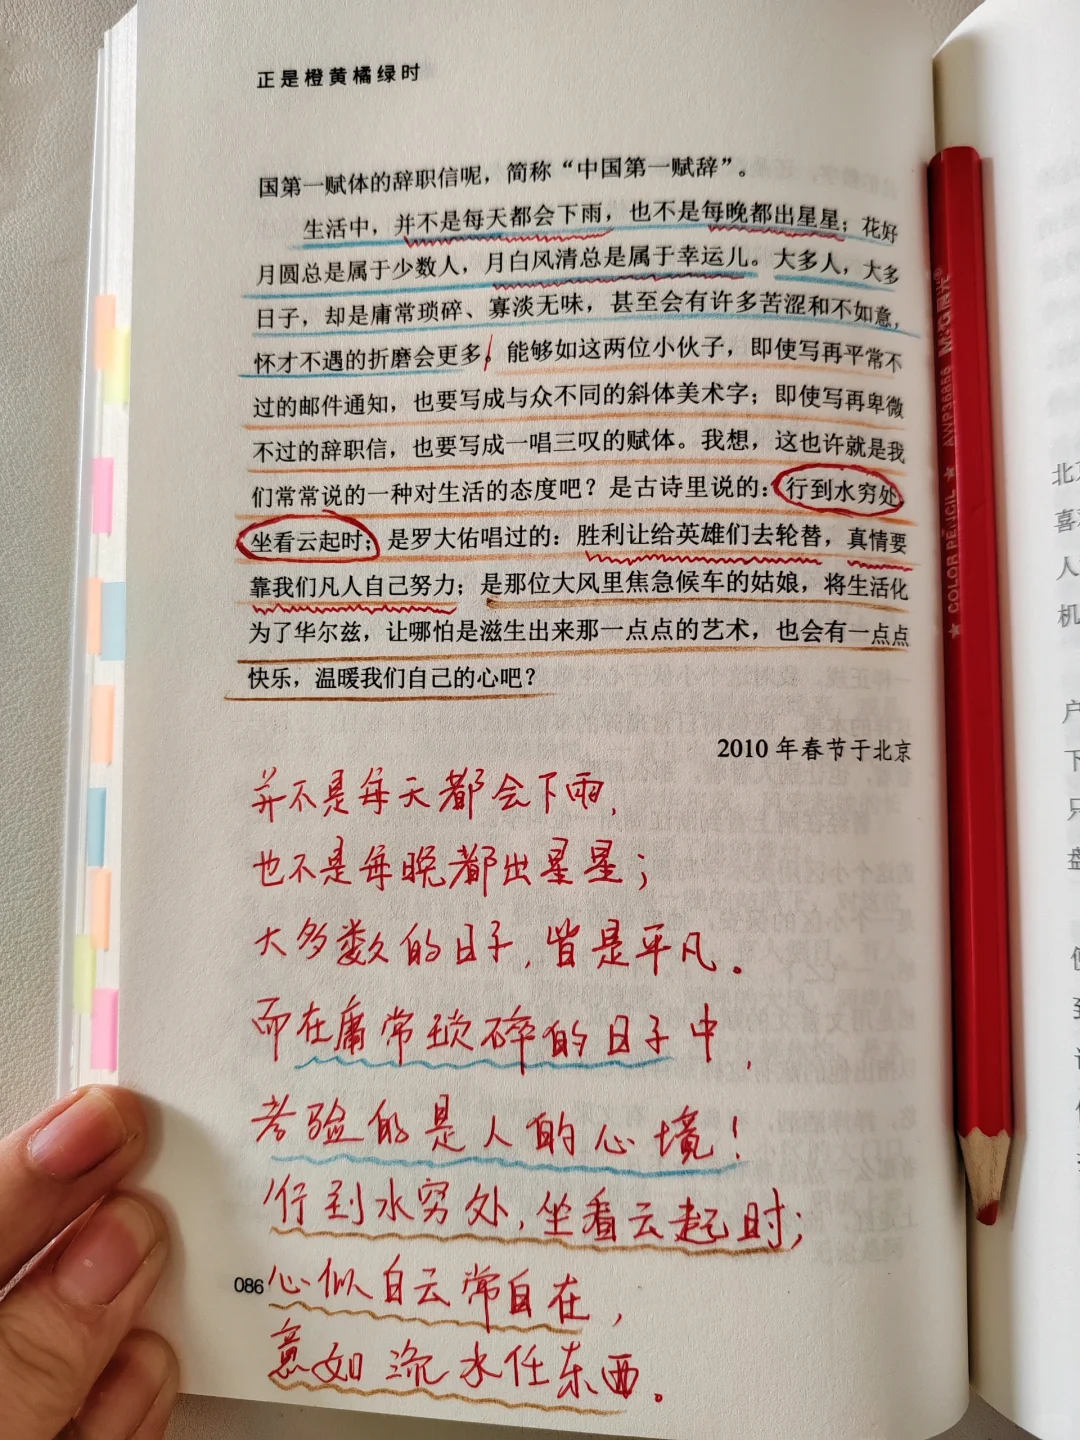 正是橙黄橘绿时
国第一赋体的辞职信呢，简称“中国第一赋辞”。
生活中，并不是每天都会下雨，也不是每晚都出星星；花好
月圆总是属于少数人，月白风清总是属于幸运儿。大多人，大多
日子，却是庸常琐碎、寡淡无味，甚至会有许多苦涩和不如意，
怀才不遇的折磨会更多。能够如这两位小伙子，即使写再平常不
过的邮件通知，也要写成与众不同的斜体美术字；即使写再卑微
不过的辞职信，也要写成一唱三叹的赋体。我想，这也许就是我
们常常说的一种对生活的态度吧？是古诗里说的：行到水穷处，
坐看云起时；是罗大佑唱过的：胜利让给英雄们去轮替，真情要
靠我们凡人自己努力；是那位大风里焦急候车的姑娘，将生活化
为了华尔兹，让哪怕是滋生出来那一点点的艺术，也会有一点点
快乐，温暖我们自己的心吧？
2010 年春节于北京
并不是每天都会下雨，
也不是每晚都出星星；
大多数的日子，皆是平凡。
而在庸常琐碎的日子中，
考验的是人的心境！
行到水穷处，坐看云起时；
086
心似白云常自在，
意如流水任东西。
M&G 晨光®
AWP36856
★ COLOR PENCIL ★
北京
喜
人
机
户
下
只
盘
但
到